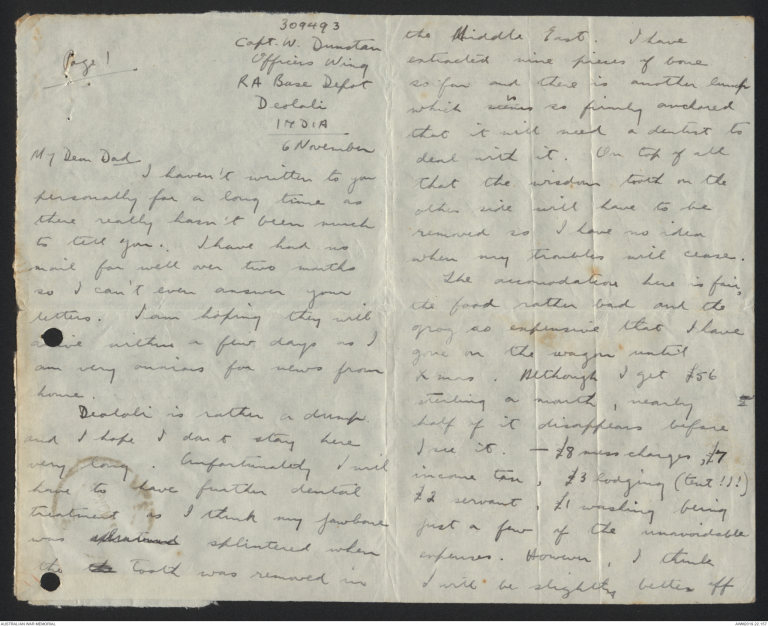 309493
Capt. W. Dunstan
Officers Wing
RA Base Depot
Deolali
INDIA
6 November
Page 1
My Dear Dad
I haven't written to you
personally for a long time as
there really hasn't been much
to tell you. I have had no
mail for well over two months
so I can't even answer your
letters. I am hoping they will
arrive within a few days as I
am very anxious for news from
home.
Deolali is rather a dump
and I hope I don't stay here
very long. Unfortunately I will
have to have further dental
treatment as I think my jawbone
was splintered when
the tooth was removed in
the Middle East. I have
extracted nine pieces of bone
so far and there is another lump
which seems so firmly anchored
that it will need a dentist to
deal with it. On top of all
that the wisdom tooth on the
other side will have to be
removed so I have no idea
when my troubles will cease.
The accomodation here is fair,
the food rather bad and the
grog so expensive that I have
gone on the wagon until
Xmas. Although I get £56
sterling a month, nearly
half of it disappears before
I see it. - £8 mess charges, £7
income tax, £3 lodging (tent!!!)
£2 servant, £1 washing being
just a few of the unavoidable
expenses. However, I think
I will be slightly better off
AUSTRALIAN WAR MEMORIAL
AWM2019.22.157